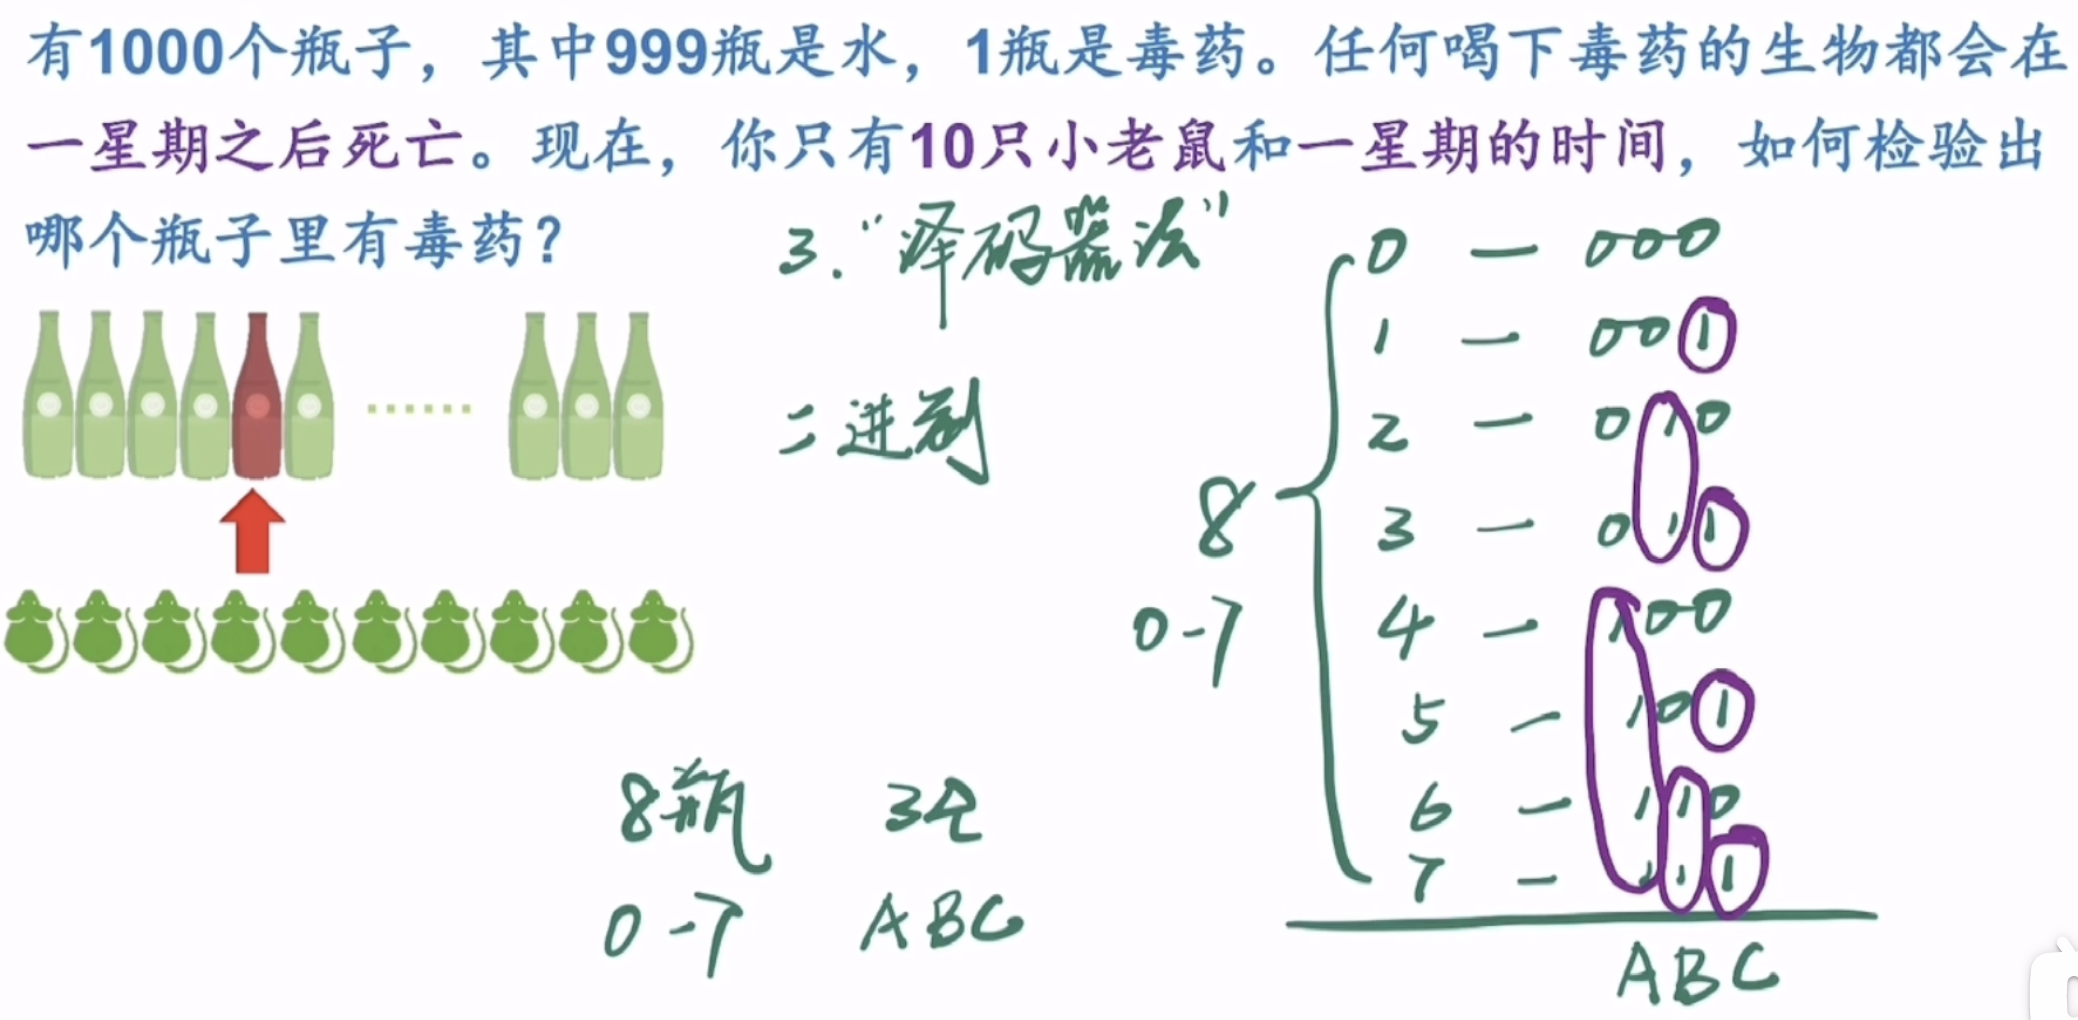 有1000个瓶子，其中999瓶是水，1瓶是毒药。任何喝下毒药的生物都会在
一星期之后死亡。现在，你只有10只小老鼠和一星期的时间，如何检验出
哪个瓶子里有毒药？
3. “译码器法”
二进制
8瓶 3只
0-7 ABC
8
0-7
0 — 000
1 — 001
2 — 010
3 — 011
4 — 100
5 — 101
6 — 110
7 — 111
ABC